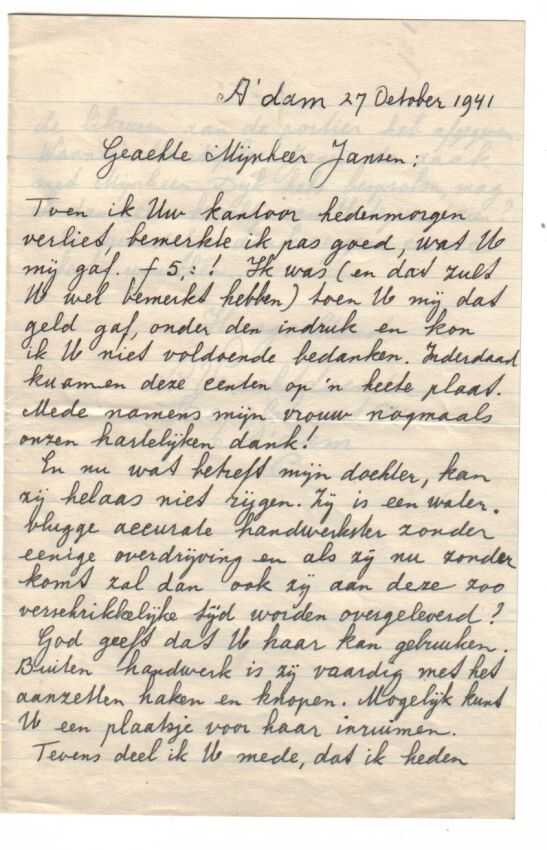 A'dam 27 October 1941
Geachte Mijnheer Jansen:
Toen ik Uw kantoor hedenmorgen
verliet, bemerkte ik pas goed, wat U
mij gaf. f 5,=! Ik was (en dat zult
U wel bemerkt hebben) toen U mij dat
geld gaf, onder den indruk en kon
ik U niet voldoende bedanken. Inderdaad
kwamen deze centen op 'n heete plaat.
Mede namens mijn vrouw nogmaals
onzen hartelijken dank!
En nu wat betreft mijn dochter, kan
zij helaas niet rijgen. Zij is een water-
vlugge accurate handwerkster zonder
eenige overdrijving en als zij nu zonder
komt zal dan ook zij aan deze zoo
verschrikkelijke tijd worden overgeleverd?
God geeft dat U haar kan gebruiken.
Buiten handwerk is zij vaardig met het
aanzetten haken en knopen. Mogelijk kunt
U een plaatsje voor haar inruimen.
Tevens deel ik U mede, dat ik heden